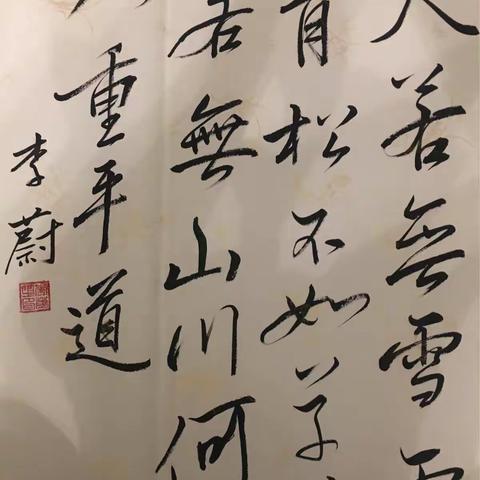 若無雪
青松不如草
若無山川何
重平道
李蔚